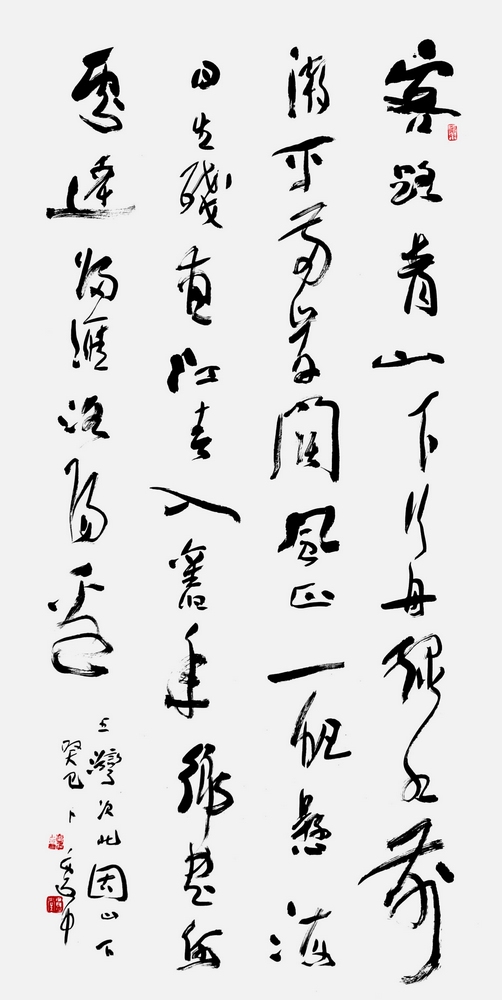 客路青山下行舟綠水前
潮平兩岸闊風正一帆懸海
日生殘夜江春入舊年鄉書何
處達歸雁洛陽邊
王灣次北固山下
癸巳